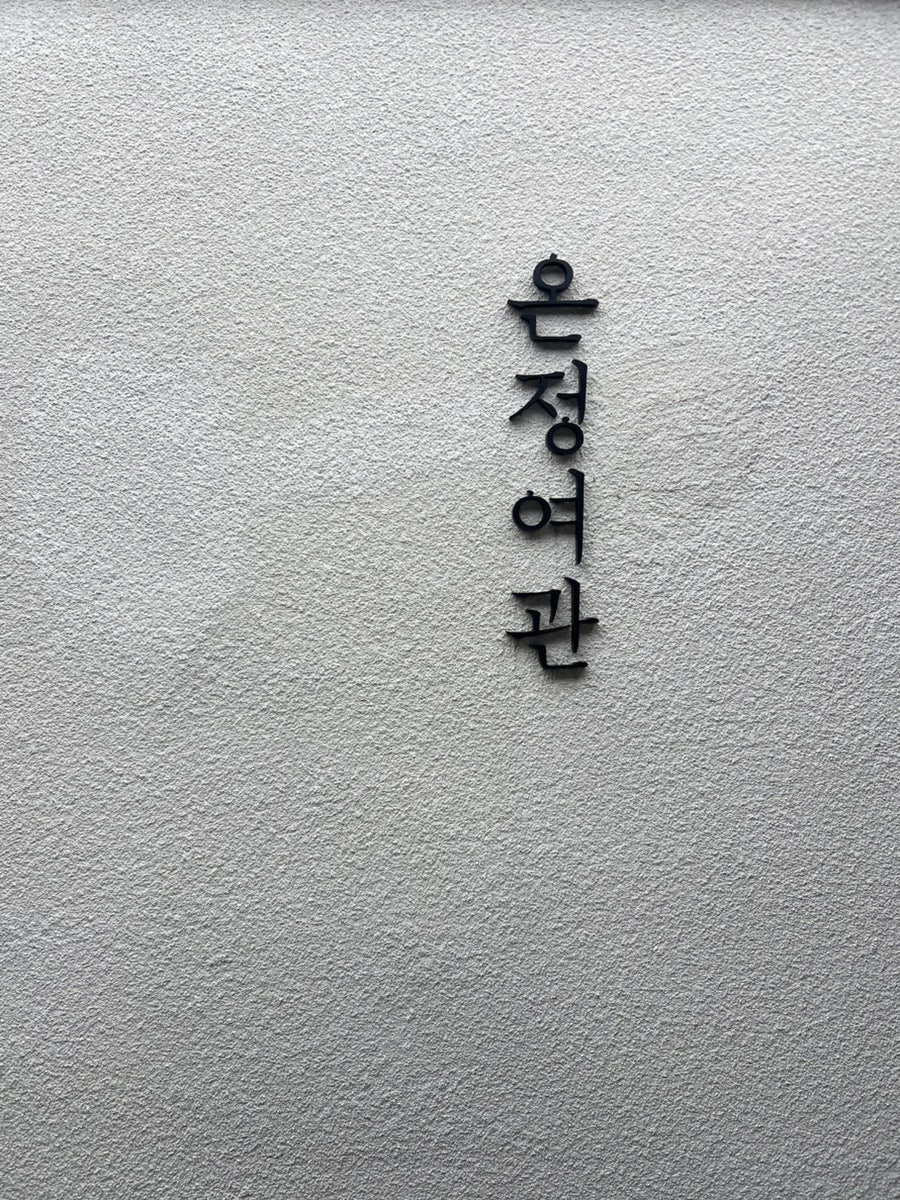 온정여관